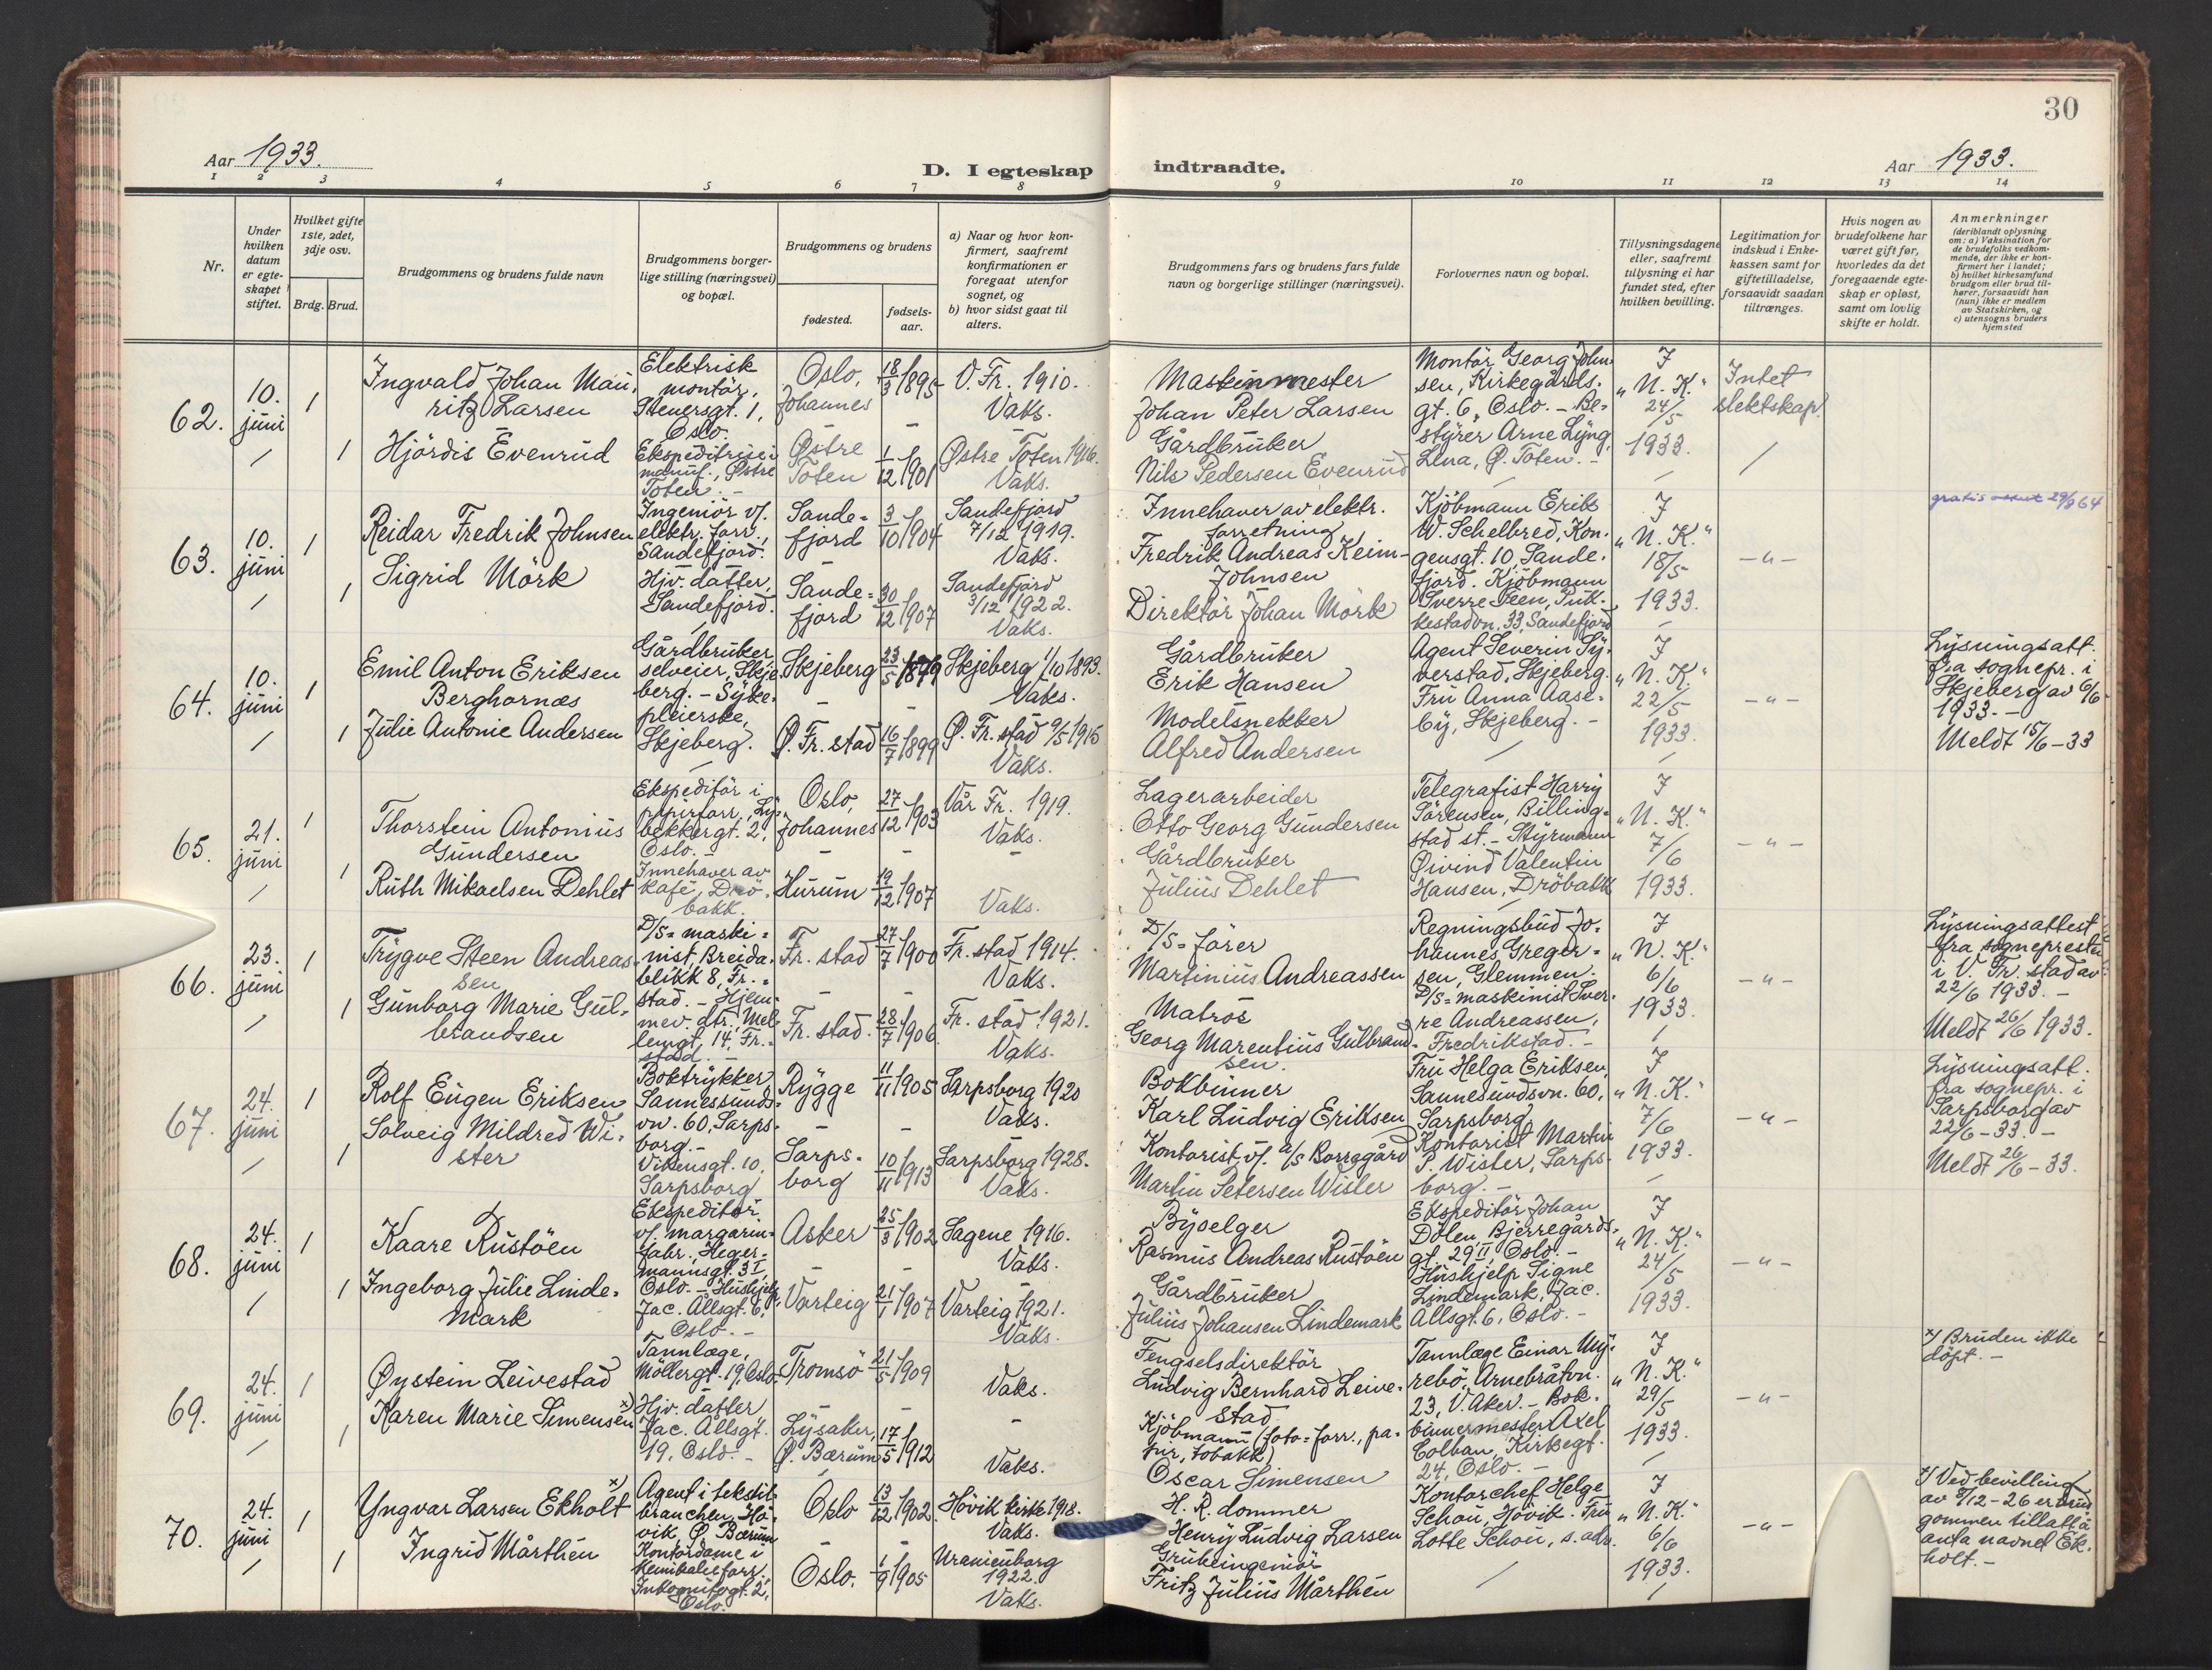 30
Aar 1933.
D. I egteskap indtraadte.
Aar 1933.
1 2 3 4 5 6 7 8 9 10 11 12 13 14
Nr.
Under hvilken datum er egteskapet stiftet.
Hvilket gifte 1ste, 2det, 3dje osv.
Brdg. Brud.
Brudgommens og brudens fulde navn
Brudgommens borgerlige stilling (næringsvei) og bopæl.
Brudgommens og brudens
fødested.
fødselsaar.
a) Naar og hvor konfirmert, saafremt konfirmationen er foregaat utenfor sognet, og
b) hvor sidst gaat til alters.
Brudgommens fars og brudens fars fulde navn og borgerlige stillinger (næringsvei).
Forlovernes navn og bopæl.
Tillysningsdagene eller, saafremt tillysning ei har fundet sted, efter hvilken bevilling.
Legitimation for indskud i Enkekassen samt for giftetilladelse, forsaavidt saadan tiltrænges.
Hvis nogen av brudefolkene har været gift før, hvorledes da det foregaaende egteskap er opløst, samt om lovlig skifte er holdt.
Anmerkninger
(deriblandt oplysning om: a) Vaksination for de brudefolks vedkommende, der ikke er konfirmert her i landet;
b) hvilket kirkesamfund brudgom eller brud tilhører, forsaavidt han (hun) ikke er medlem av Statskirken, og
c) utensogns bruders hjemsted
62. 10. juni 1
Ingvald Johan Mauritz Larsen
Elektrisk montör, Stenersgt. 1, Oslo.
Oslo, Johannes
18/3 1895
V. Fr. 1910. Vaks.
Maskinmester Johan Peter Larsen
Montör Georg Johnsen, Kirkegårdsgt. 6, Oslo. - Bestyrer Arne Lyng, Lena, Ø. Toten. -
I „N. K." 24/5 1933.
Intet slektskap.
1 Hjördis Evenrud
Ekspeditrise i manuf., Østre Toten. -
Østre Toten
1/12 1901
Østre Toten 1916. Vaks.
Gårdbruker Nils Pedersen Evenrud
63. 10. juni 1
Reidar Fredrik Johnsen
Ingeniör v/ elektr. forr., Sandefjord.
Sandefjord
3/10 1904
Sandefjord 7/12 1919. Vaks.
Innehaver av elektr. forretning Fredrik Andreas Keim-Johnsen
Kjöbmann Erik W. Schelbred, Kongensgt. 10, Sandefjord. Kjöbmann Sverre Feen, Pukkestadvn. 33, Sandefjord
I „N. K." 18/5 1933.
- " -
gratis 29/8 64
1 Sigrid Mörk
Hjv. datter, Sandefjord.
Sandefjord
30/12 1907
Sandefjord 3/12 1922. Vaks.
Direktör Johan Mörk
64. 10. juni 1
Emil Anton Eriksen Berghornæs
Gårdbruker, selveier, Skjeberg. - Sykepleierske, Skjeberg.
Skjeberg
23/5 1879
Skjeberg 1/10 1893. Vaks.
Gårdbruker Erik Hansen
Agent Severin Syverstad, Skjeberg. Fru Anna Aaseby, Skjeberg. -
I „N. K." 22/5 1933.
- " -
Lysningsatt. fra sognepr. i Skjeberg av 6/6 1933. -
Meldt 15/6 - 33
1 Julie Antonie Andersen
Ø. Fr. stad
16/7 1899
Ø. Fr. stad 9/5 1915 Vaks.
Modelsnekker Alfred Andersen
65. 21. juni 1
Thorstein Antonius Gundersen
Ekspeditör i papirforr., Lybekkergt. 2, Oslo. -
Oslo, Johannes
27/12 1903
Vår Fr. 1919. Vaks.
Lagerarbeider Otto Georg Gundersen
Telegrafist Harry Sörensen, Billingstad st. - Styrmann Øivind Valentin Hansen, Dröbakk
I „N. K." 7/6 1933.
- " -
1 Ruth Mikaelsen Dehlet
Innehaver av kafé, Dröbakk.
Hurum
19/12 1907
Vaks.
Gårdbruker Julius Dehlet
66. 23. juni 1
Trygve Steen Andreassen
D/S = maskinist, Breidablikk 8, Fr.stad. - Hjemmev. dtr., Mellemgt. 14, Fr.stad. -
Fr. stad
27/7 1900
Fr. stad 1914. Vaks.
D/S = förer Martinius Andreassen
Regningsbud Johannes Gregersen, Glemmen. D/S = maskinist Sverre Andreassen, Fredrikstad. -
I „N. K." 6/6 1933.
- " -
Lysningsattest fra sognepresten i V. Fr. stad av 22/6 1933. -
Meldt 26/6 1933.
1 Gunborg Marie Gulbrandsen
Fr. stad.
28/7 1906
Fr. stad 1921. Vaks.
Matros Georg Marentius Gulbrandsen.
67. 24. juni 1
Rolf Eugen Eriksen
Boktrykker, Sannesundsvn. 60, Sarpsborg. -
Rygge
11/11 1905
Sarpsborg 1920 Vaks.
Bokbinner Karl Ludvig Eriksen
Fru Helga Eriksen, Sannesundsvn. 60, Sarpsborg. Kontorist Martin P. Wister, Sarpsborg. -
I „N. K." 7/6 1933.
- " -
Lysningsatt. fra sognepr. i Sarpsborg av 22/6 - 33. -
Meldt 26/6 - 33.
1 Solveig Mildred Wister
Vikensgt. 10, Sarpsborg
Sarpsborg
10/11 1913
Sarpsborg 1928. Vaks.
Kontorist v/ A/S Borregård Martin Petersen Wister
68. 24. juni 1
Kaare Rustöen
Ekspeditör v/ margarinfabr., Hegermannsgt. 3 I, Oslo. - Hushjelp, Jac. Allsgt. 6, Oslo. -
Asker
25/3 1902
Sagene 1916. Vaks.
Byselger Rasmus Andreas Rustöen
Ekspeditör Johan Dölen, Bjerregårdsgt. 29 II, Oslo. - Hushjelp Signe Lindemark, Jac. Allsgt. 6, Oslo. -
I „N. K." 24/5 1933.
- " -
1 Ingeborg Julie Lindemark
Varteig
21/1 1907
Varteig 1921. Vaks.
Gårdbruker Julius Johansen Lindemark
69. 24. juni 1
Øystein Leivestad
Tannlæge, Möllergt. 19, Oslo.
Tromsö
21/5 1909
Vaks.
Fengselsdirektör Ludvig Bernhard Leivestad
Tannlæge Einar Myrebö, Arnebråtvn. 23, V. Aker. - Bokbinnermester Axel Colban, Kirkegt. 24, Oslo. -
I „N. K." 29/5 1933.
- " -
x) Bruden ikke döpt. -
1 Karen Marie Simensen x)
Hjv. datter Jac. Allsgt. 19, Oslo. -
Lysaker, Ø. Bærum
17/5 1912
Vaks.
Kjöbmann (foto = forr., papir, tobakk) Oscar Simensen
70. 24. juni 1
Yngvar Larsen Ekholt x)
Agent i tekstilbranchen, Hövik, Ø. Bærum
Oslo
13/12 1902.
Hövik kirke 1918. Vaks.
H. R. dommer Henry Ludvig Larsen
Kontorchef Helge Schou, Hövik. Fru Lotte Schou, s. adr.
I „N. K." 6/6 1933.
- " -
x) Ved bevilling av 9/12 - 26 er brudgommen tillatt å anta navnet Ekholt. -
1 Ingrid Mårthén
Kontordame i kemikalieforr. Inkognitogt. 2, Oslo.
Oslo.
1/9 1905
Uranienborg 1922. Vaks.
Grubeingeniör Fritz Julius Mårthén